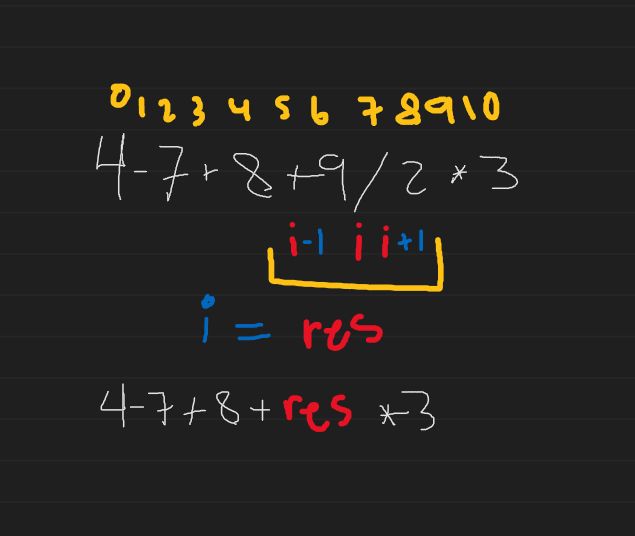 0 1 2 3 4 5 6 7 8 9 10
4-7+8+9/2*3
i-1 i i+1
i = res
4-7+8+res*3